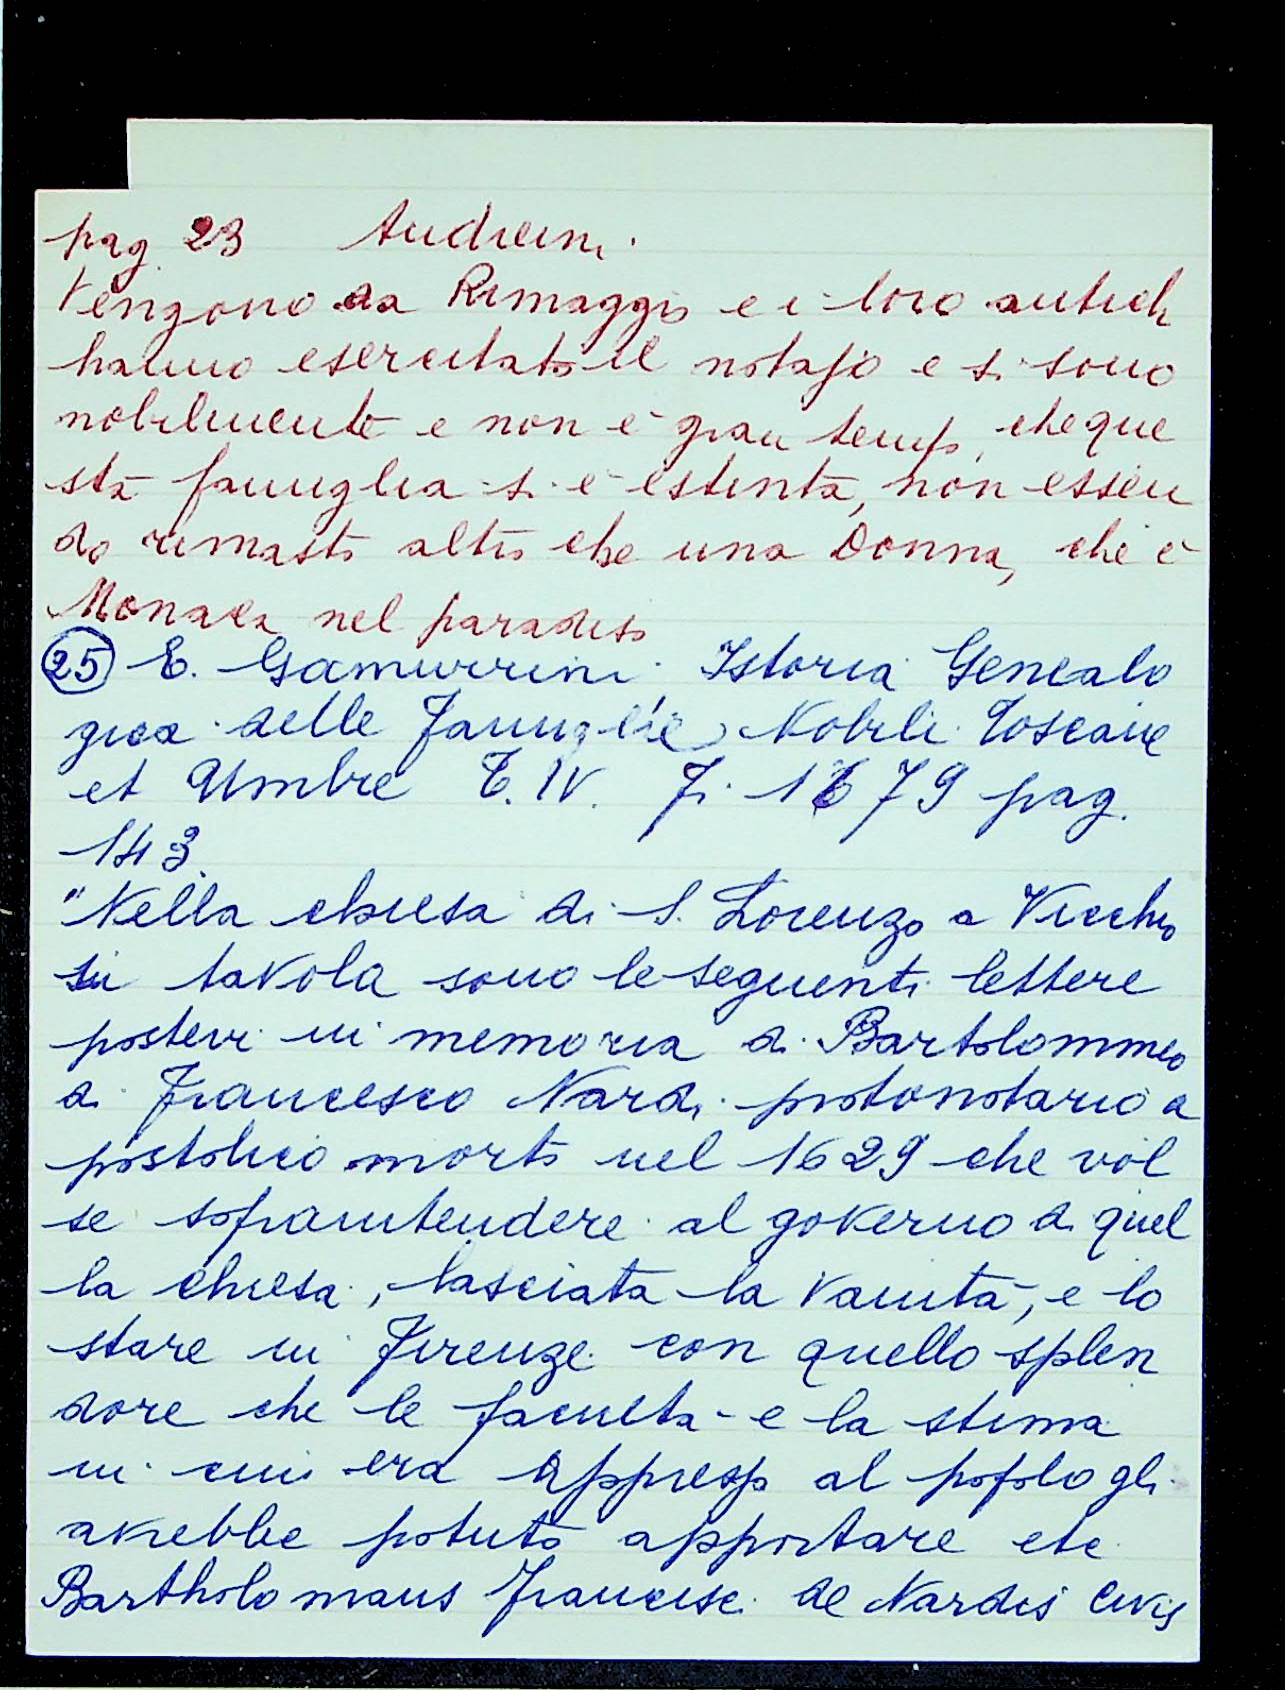 pag. 23 Andreini.
Vengono da Rimaggio e i loro antichi
hanno esercitato il notajo e si sono
nobilmente e non è gran tempo, che que
sta famiglia si è estinta, non essen
do rimasto altro che una Donna, che è
Monaca nel paradiso
(25) E. Gamurrini. Istoria Genealo
gica delle Famiglie Nobili Toscane
et Umbre T. IV. Fi 1679 pag.
143.
"Nella chiesa di S. Lorenzo a Vicchio
in tavola sono le seguenti lettere
postevi in memoria di Bartolommeo
di Francesco Nardi protonotario a
postolico morto nel 1629 che vol
se soprantendere al governo di quel
la chiesa, lasciata la vanità, e lo
stare in Firenze con quello splen
dore che le facultà e la stima
in cui era appresso al popolo gli
avrebbe potuto apportare etc
Bartholomaus Francisci de Nardis Civis